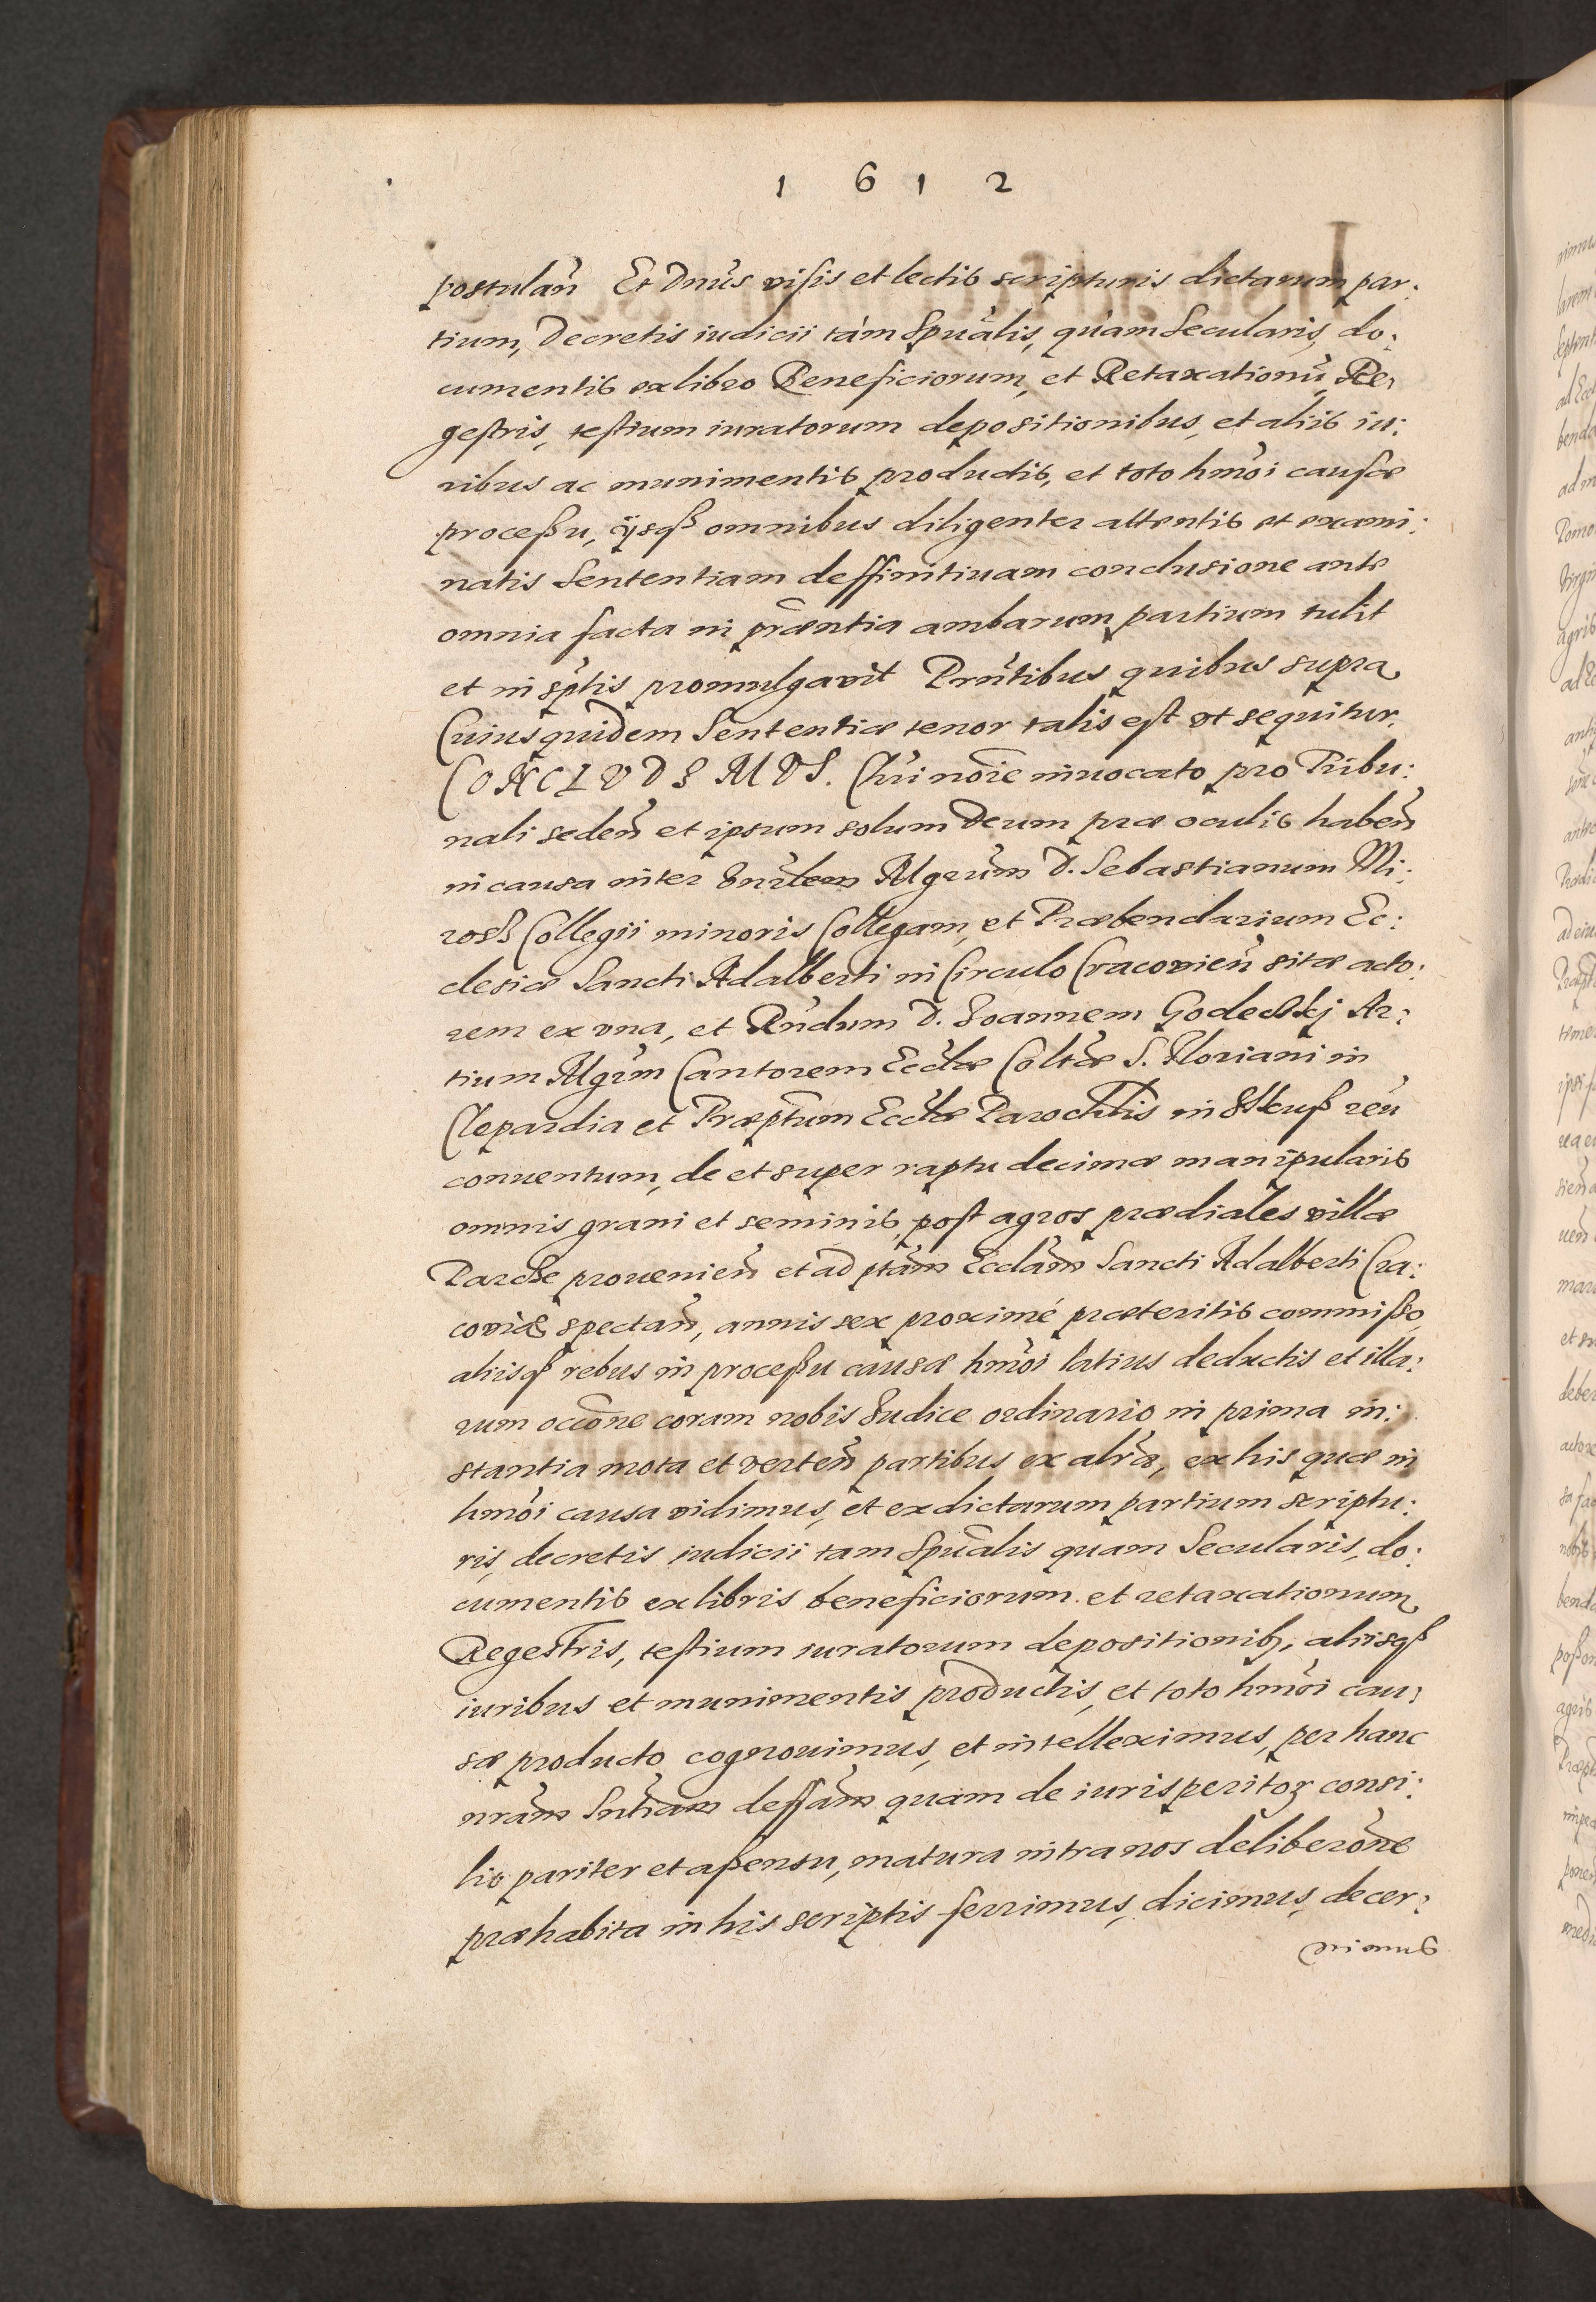 1 6 1 2
postulan̄ Et Dnūs visis et lectis scripturis dictarum par:
tium, Decretis iudicii tàm Spuālis, quàm Secularis, do:
cumentis ex libro Beneficiorum, et Retaxationū Re:
gestris, testium iuratorum depositionibus, et aliis iu:
ribus ac munimentis productis, et toto hmōi causæ
processu, ijsq́ omnibus diligenter attentis et exami:
natis Sententiam deffinitiuam conclusione ante
omnia facta in prǣntia ambarum partium tulit
et in sp̄tis promulgavit Prn̄tibus quibus supra
Cuius quidem Sententiæ tenor talis est vt sequitur.
CONCLVDEMVS. Chri nōie inuocato pro Tribu:
nali seden̄ et ipsum solum Deum præ oculis haben̄
in causa inter Mgrum D. Sebastianum Mi:
Collegii minoris Collegam, et Præbendarium Ec:
clesiæ Sancti Adalberti in Circulo Cracovien̄ sitæ acto:
rem ex vna, et Rn̄dum D. Joannem Godecskj Ar:
tium Mgrm̄ Cantorem Ecclæ Coltæ S. Floriani in
Clepardia et Præptum Ecclæ Parochlis in Ilkuss reū
conuentum, de et super raptu decimæ manipularis
omnis grani et seminis, post agros prædiales villæ
prouenien̄ et ad ptām Ecclām Sancti Adalberti Cra:
coviæ spectan̄, annis sex proximé præteritis commisso,
aliisq́ rebus in processu causæ hmōi latius deductis et illa:
rum occōne coram nobis Judice ordinario in prima in:
stantia mota et verten̄ partibus ex altrā, ex his quæ in
hmōi causa vidimus, et ex dictarum partium scriptu:
ris, decretis iudicii tam Spuālis quam Secularis, do:
cumentis ex libris beneficiorum et retaxationum
Regestris, testium iuratorum depositionibꝫ, aliisq́
iuribus et munimentis productis, et toto hmōi cau:
sæ producto cognouimus, et intelleximus, per hanc
nrām Sntīam deffām quam de iurisperitoꝝ consi:
lio pariter et assensu, matura intra nos deliberōne
præhabita in his scriptis ferrimus, dicimus, decer: